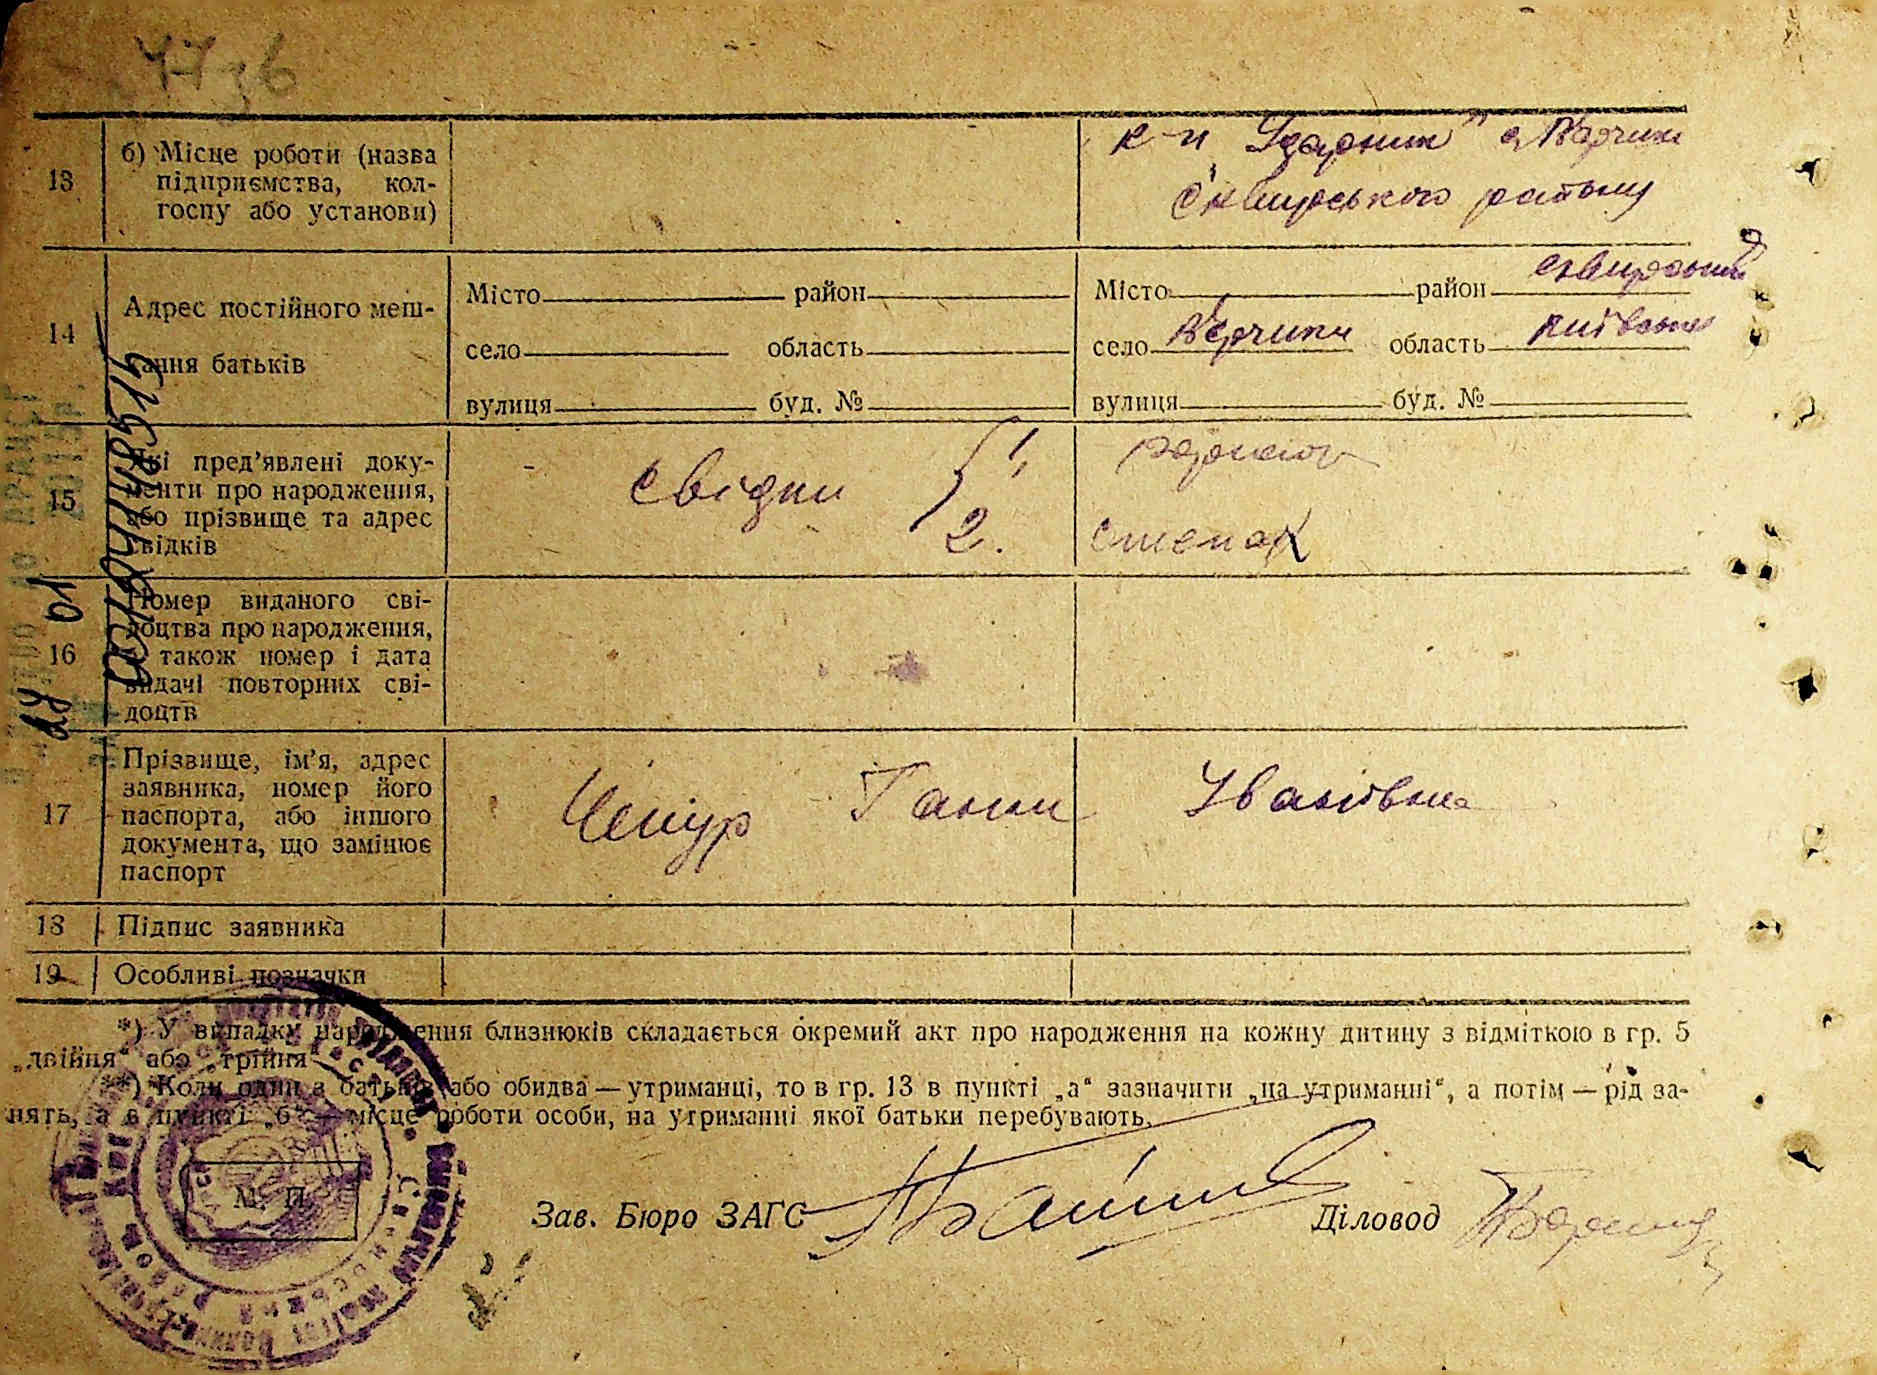 13
б) Місце роботи (назва
підприємства, кол-
госпу або установи)
к-п „Ударник" с. Верчики
Сквирського району
14
Адрес постійного меш-
кання батьків
Місто район
село область
вулиця буд. №
Місто район Сквирський
село Верчики область Київська
вулиця буд. №
15
Які пред’явлені доку-
менти про народження,
або прізвище та адрес
свідків
Свідки 1.
2. Степан
16
Номер виданого сві-
доцтва про народження,
а також номер і дата
видачі повторних сві-
доцтв
17
Прізвище, ім’я, адрес
заявника, номер його
паспорта, або іншого
документа, що замінює
паспорт
Ганни Іванівна
18 Підпис заявника
19 Особливі позначки
*) У випадку народження близнюків складається окремий акт про народження на кожну дитину з відміткою в гр. 5
„двійня“ або „трійня“.
**) Коли один з батьків або обидва — утриманці, то в гр. 13 в пункті „а“ зазначити „на утриманні“, а потім — рід за-
нять, а в пункті „б“ — місце роботи особи, на утриманні якої батьки перебувають.
М. П.
Зав. Бюро ЗАГС
Діловод